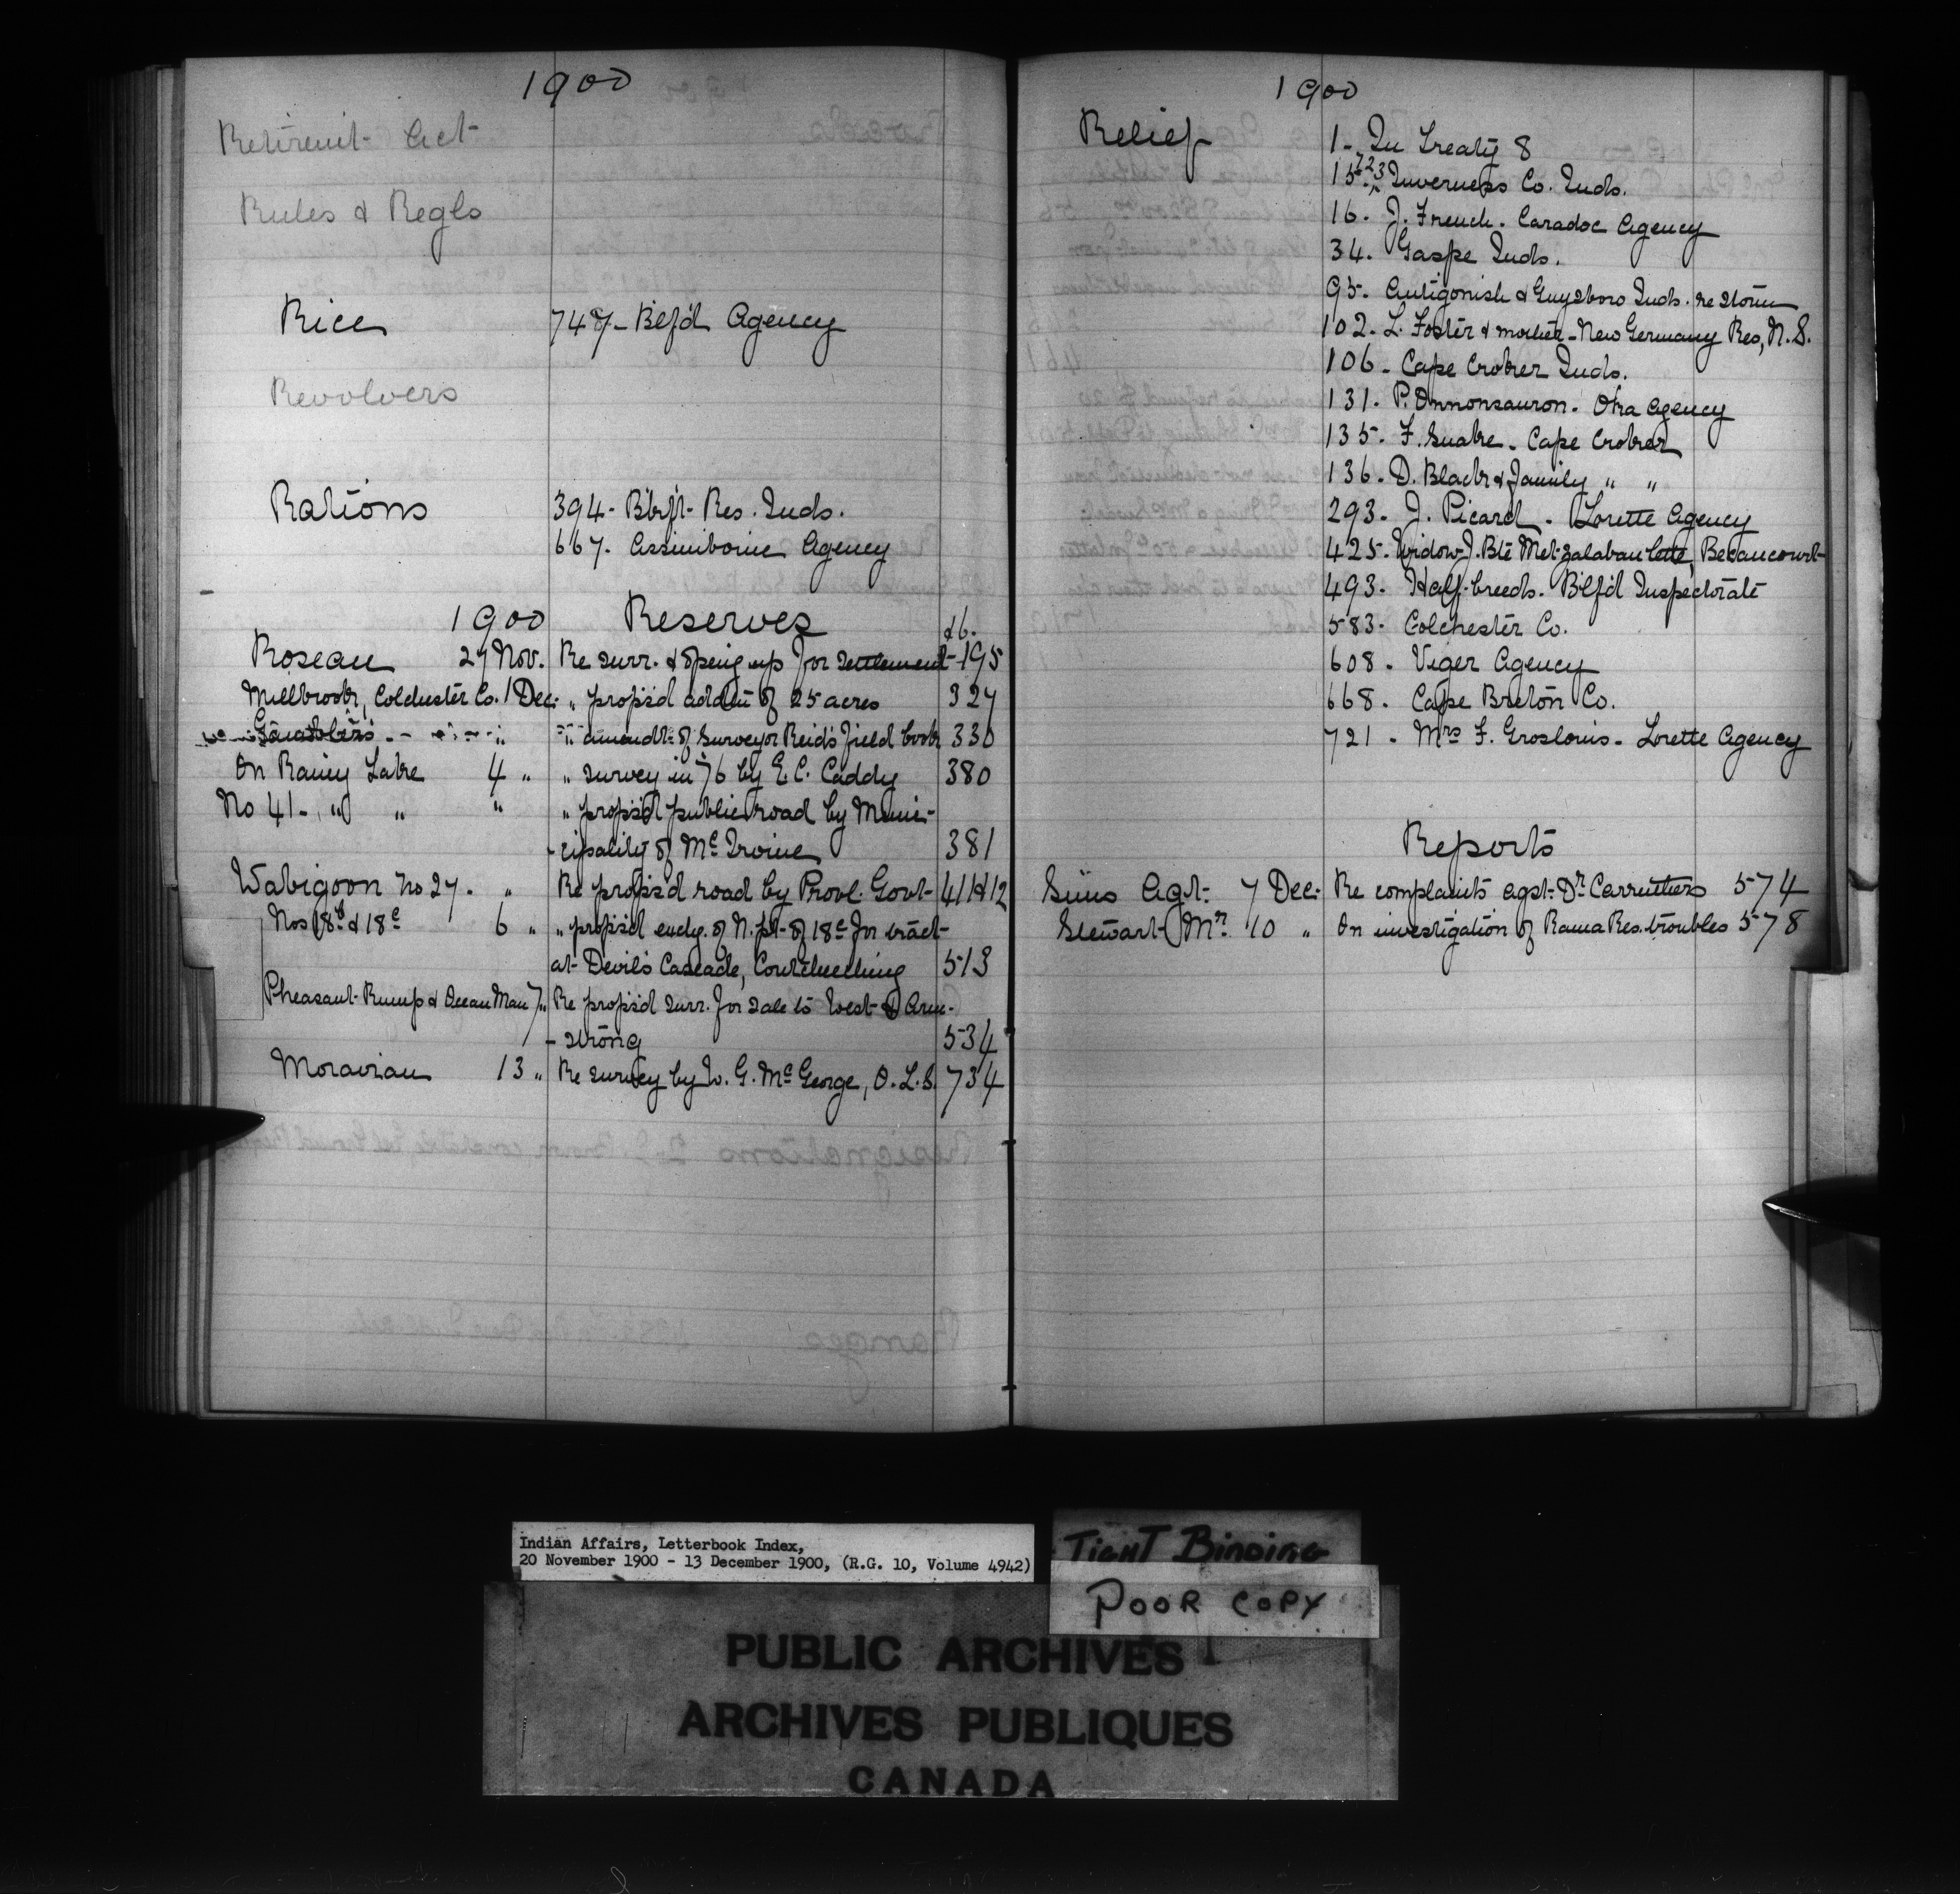 1900
Retirem't Act
Rules & Regls
Rice 748- Btlf'd Agency
Revolvers
Rations 394- Res. Inds.
667. Assiniboine Agency
1900 Reserves
Roseau 27 Nov. Re surr. & open'g up for settlement 195
Millbrook, Colchester Co. 1 Dec. " propos'd add'tn of 25 acres 327
Gambler's " " amendt. of Surveyor Reid's field book 330
On Rainy Lake 4 " " survey in '76 by E. C. Caddy 380
No 41- " " " " propos'd public road by Muni-
-cipality of McIrvine 381
Wabigoon No 27. " Re propos'd road by Provl. Govt- 411 & 12
Nos 18b & 18c 6 " " propos'd exchg. of N. pt- of 18c for tract
at Devil's Cascade, Coutcheeching 513
Pheasant Rump & Ocean Man 7 " Re propos'd surr. for sale to West & Arm-
-strong 534
Moravian 13 " Re survey by W. G. McGeorge, O. L. S. 734
1900
Relief 1- In Treaty 8
15. 723 Inverness Co. Inds.
16. J. French. Caradoc Agency
34. Gaspe Inds.
95. Antigonish & Guysboro Inds. re storm
102. L. Foster & mother - New Germany Res, N.S.
106- Cape Croker Inds.
131. P. Onnonsauron. Oka Agency
135. F. Snake - Cape Croker
136. D. Black & family " "
293. J. Picard - Lorette Agency
425. Widow J. Bte Becancourt
493. Half-breeds. Btlf'd Inspectorate
583. Colchester Co.
608. Viger Agency
668. Cape Breton Co.
721. Mrs F. Groslouis. Lorette Agency
Reports
Sims Agt. 7 Dec. Re complaints agst. Dr Carruthers 574
Stewart Mr. 10 " On investigation of Rama Res. troubles 578
Indian Affairs, Letterbook Index,
20 November 1900 - 13 December 1900, (R.G. 10, Volume 4942)
TIGHT BINDING
POOR COPY
PUBLIC ARCHIVES
ARCHIVES PUBLIQUES
CANADA